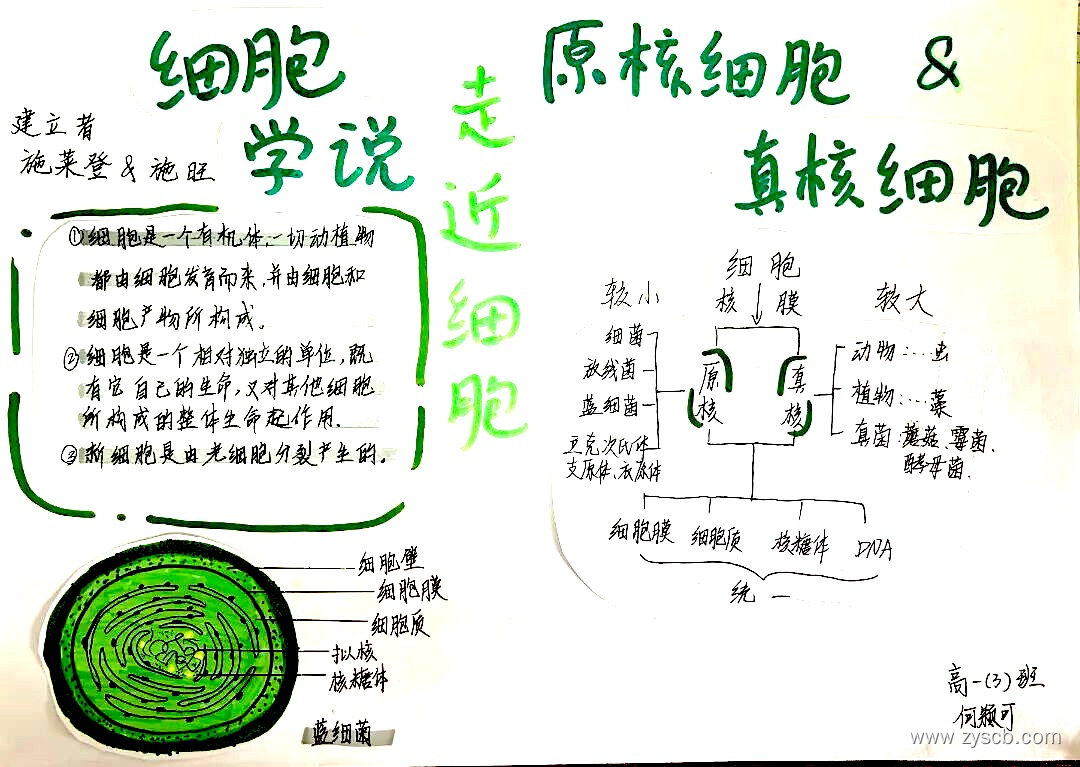 细胞
学说
建立者
施莱登 & 施旺
①细胞是一个有机体,一切动植物
都由细胞发育而来,并由细胞和
细胞产物所构成。
②细胞是一个相对独立的单位,既
有它自己的生命,又对其他细胞
所构成的整体生命起作用.
③新细胞是由老细胞分裂产生的.
细胞壁
细胞膜
细胞质
拟核
核糖体
蓝细菌
走近细胞
原核细胞 &
真核细胞
细胞
核膜
较小
细菌
放线菌
蓝细菌
立克次氏体
支原体、衣原体
原核
真核
较大
动物:...虫
植物:...藻
真菌:蘑菇、霉菌、
酵母菌.
细胞膜 细胞质 核糖体 DNA
统一
高一(3)班
何颖可
www.zyscb.com